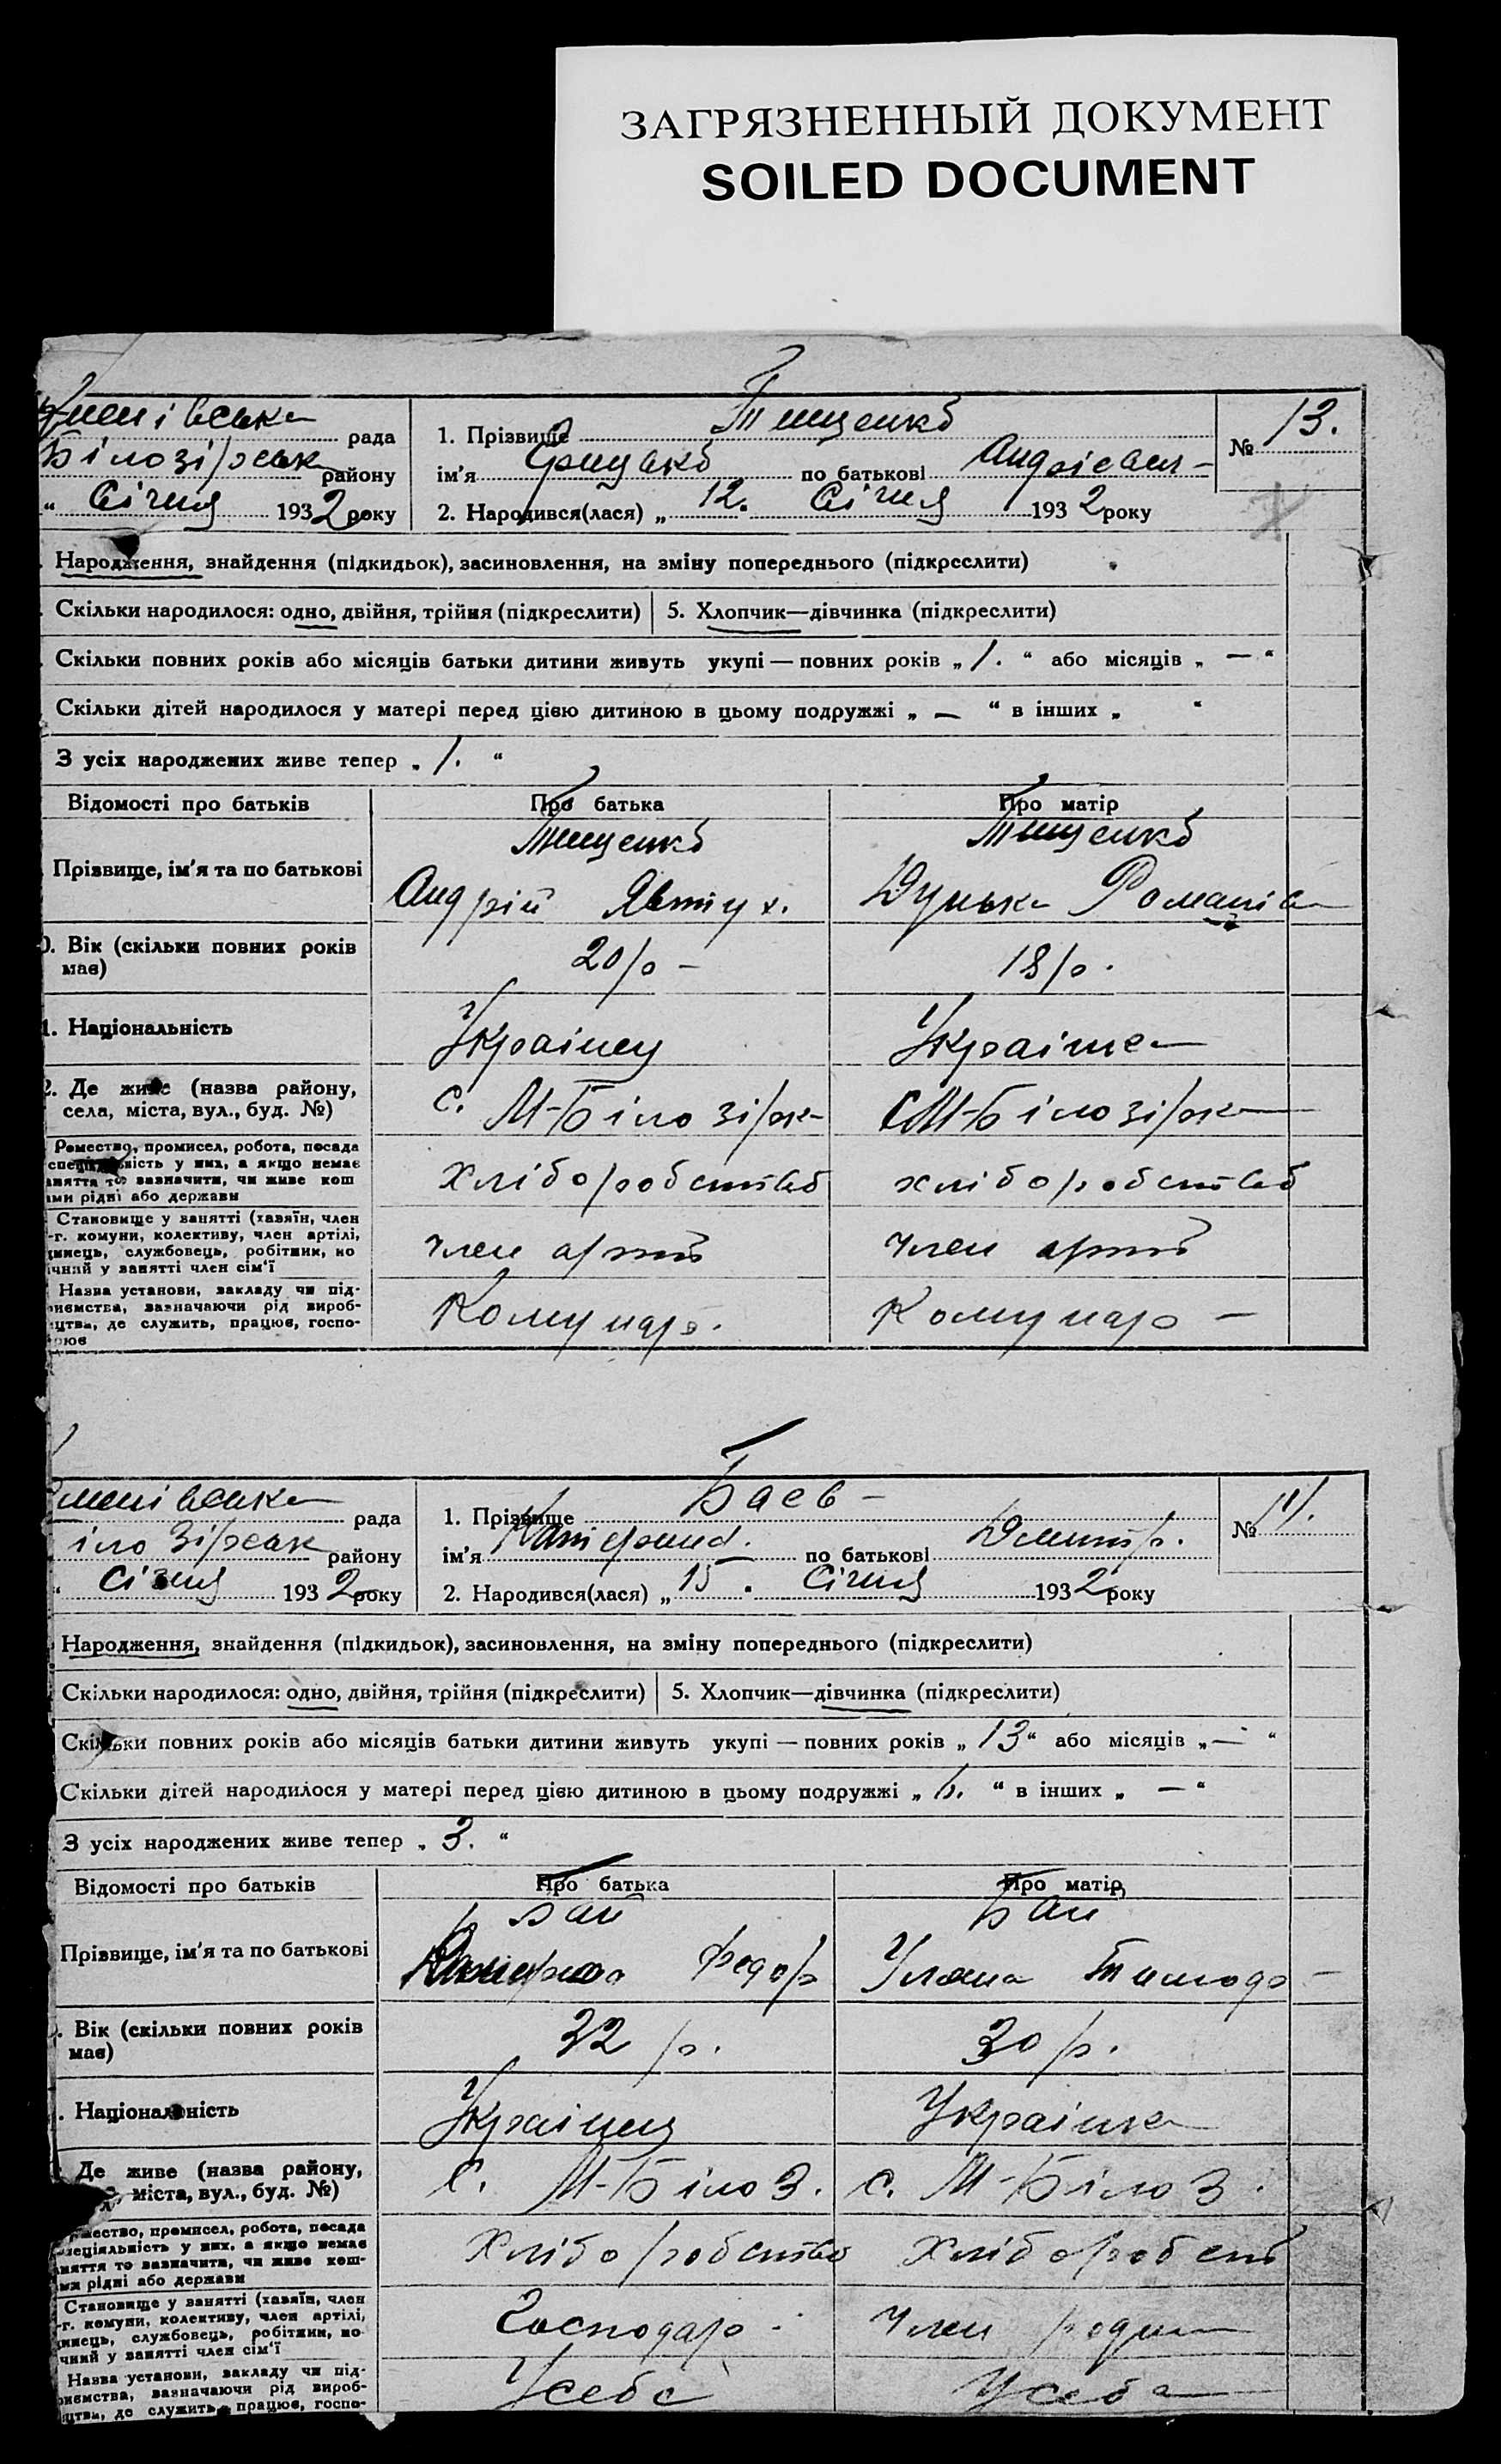 ЗАГРЯЗНЕННЫЙ ДОКУМЕНТ
SOILED DOCUMENT
рада
Білозірськ району
" Січня 1932 року
1. Прізвище Тищенко
ім'я Грицько по батькові Андрієвич
2. Народився(лася) „ 12. Січня 1932 року
№ 13.
Народження, знайдення (підкидьок), засиновлення, на зміну попереднього (підкреслити)
Скільки народилося: одно, двійня, трійня (підкреслити) 5. Хлопчик—дівчинка (підкреслити)
Скільки повних років або місяців батьки дитини живуть укупі — повних років „ 1. " або місяців „ — "
Скільки дітей народилося у матері перед цією дитиною в цьому подружжі „ — " в інших „ "
З усіх народжених живе тепер „ 1. "
Відомості про батьків Про батька Про матір
Прізвище, ім'я та по батькові
Тищенко Тищенко
Андрій Явтух. Дунька Романів
Вік (скільки повних років
має)
20 р – 18 р.
1. Національність Українец Українка
2. Де живе (назва району,
села, міста, вул., буд. №)
с. М-Білозірк с М-Білозірк
Ремество, промисел, робота, посада
спеціяльність у них, а якщо немає
заняття то зазначити, чи живе кош
ами рідні або держави
хліборобство хліборобство
Становище у занятті (хазяїн, член
-г. комуни, колективу, член артілі,
службовець, робітник, по
чний у занятті член сім'ї
член артіл член артіл
Назва установи, закладу чи під-
риємства, зазначаючи рід вироб-
ицтва, де служить, працює, госпо-
рює
Комунар. Комунар –
рада
ілозірськ району
" Січня 1932 року
1. Прізвище Баев –
ім'я по батькові Дмитр.
2. Народився(лася) „ 15. Січня 1932 року
№
Народження, знайдення (підкидьок), засиновлення, на зміну попереднього (підкреслити)
Скільки народилося: одно, двійня, трійня (підкреслити) 5. Хлопчик—дівчинка (підкреслити)
Скільки повних років або місяців батьки дитини живуть укупі — повних років „ 13 " або місяців „ — "
Скільки дітей народилося у матері перед цією дитиною в цьому подружжі „ " в інших „ — "
З усіх народжених живе тепер „ 3. "
Відомості про батьків Про батька Про матір
Прізвище, ім'я та по батькові
Баи Баи
Федор Уляна Тимофе –
Вік (скільки повних років
має)
32 р. 30 р.
Національність Українец Українка
Де живе (назва району,
міста, вул., буд. №)
с. М-Білоз. с. М-Білоз.
Ремество, промисел, робота, посада
спеціяльність у них, а якщо немає
заняття то зазначити, чи живе кош-
ами рідні або держави
Хліборобство Хліборобст
Становище у занятті (хазяїн, член
-г. комуни, колективу, член артілі,
службовець, робітник, по
чний у занятті член сім'ї
Господар. Член родин
Назва установи, закладу чи під-
риємства, зазначаючи рід вироб-
ицтва, де служить, працює, госпо-
Усебе Усебе